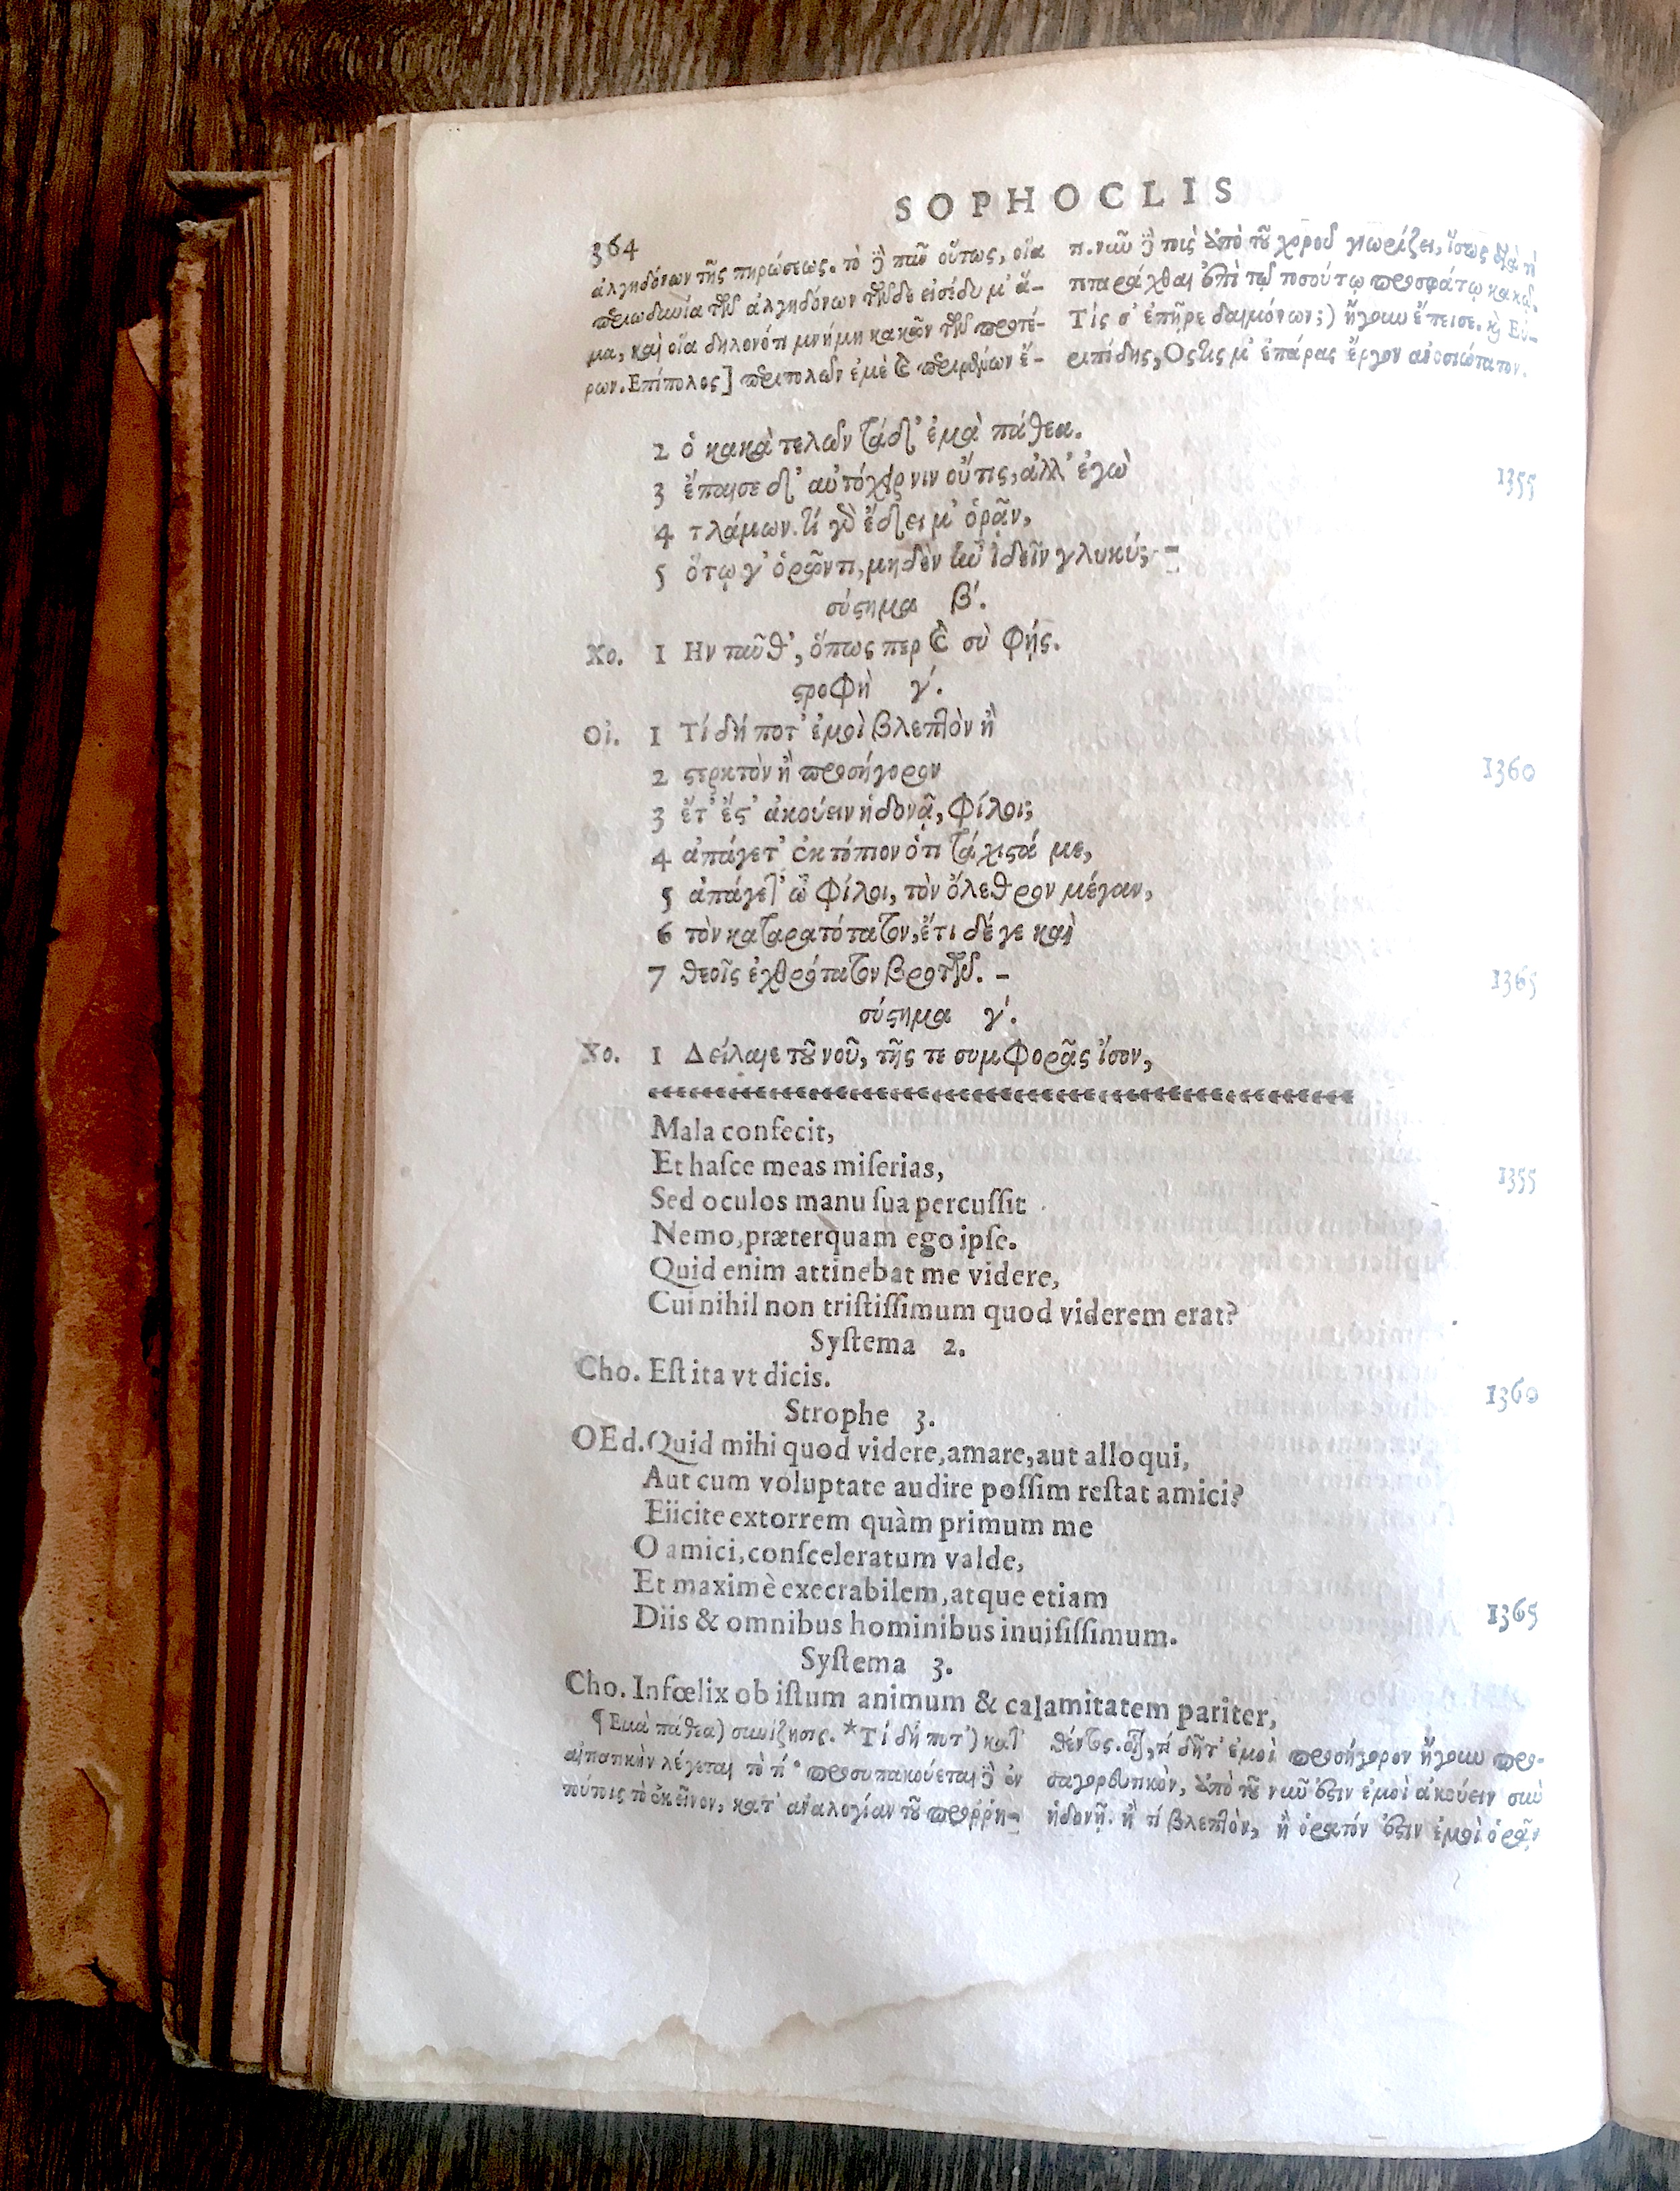 SOPHOCLIS
364
ἀλγηδόνων τῆς πηρώσεως. τὸ ἢ πᾶν οὕτως, οἵα
περιωδυνία τῶν ἀλγηδόνων τῶνδε εἰσέδυ μ' ἅ-
μα, καὶ οἵα δηλονότι μνήμη κακῶν τῶν προτέ-
ρων. Επίπολος] περιπολῶν ἐμὲ καὶ
π. νῦν ἢ τοῖς ἀπὸ τοῦ χοροῦ γνωρίζει, ἴσως διὰ τὸ
πταράχθαι ἐπὶ τῷ τοσούτῳ προσφάτῳ κακῷ.
Τίς σ' ἐπῆρε δαιμόνων;) ἤγουν ἔπεισε. καὶ Εὐ-
ριπίδης, Οστις μ' ἐπάρας ἔργον ἀνοσιώτατον.
2 ὁ κακὰ τελῶν τάδ' ἐμὰ πάθεα.
3 ἔπαισε δ' αὐτόχειρ νιν οὔτις, ἀλλ' ἐγὼ
1355
4 τλάμων. τί γὰρ ἔδει μ' ὁρᾶν,
5 ὅτῳ γ' ὁρῶντι, μηδὲν ἦν ἰδεῖν γλυκύ; -
σύστημα β'.
Χο. 1 Ην ταῦθ', ὅπως περ καὶ σὺ φής.
στροφὴ γ'.
Οἰ. 1 Τί δή ποτ' ἐμοὶ βλεπτὸν ἢ
2 στερκτὸν ἢ προσήγορον
1360
3 ἔτ' ἔστ' ἀκούειν ἡδονᾷ, φίλοι;
4 ἀπάγετ' ἐκτόπιον ὅτι τάχιστά με,
5 ἀπάγετ' ὦ φίλοι, τὸν ὄλεθρον μέγαν,
6 τὸν καταρατότατον, ἔτι δέ γε καὶ
7 θεοῖς ἐχθρότατον βροτῶν. -
1365
σύστημα γ'.
Χο. 1 Δείλαιε τοῦ νοῦ, τῆς τε συμφορᾶς ἴσον,
Mala confecit,
Et hasce meas miserias,
1355
Sed oculos manu sua percussit
Nemo, præterquam ego ipse.
Quid enim attinebat me videre,
Cui nihil non tristissimum quod viderem erat?
Systema 2.
Cho. Est ita vt dicis.
1360
Strophe 3.
OEd. Quid mihi quod videre, amare, aut alloqui,
Aut cum voluptate audire possim restat amici?
Eiicite extorrem quàm primum me
O amici, consceleratum valde,
Et maximè execrabilem, atque etiam
1365
Diis & omnibus hominibus inuisissimum.
Systema 3.
Cho. Infœlix ob istum animum & calamitatem pariter,
¶ Εμὰ πάθεα) συνίζησις. *Τί δή ποτ') κατ'
αἰτιατικὴν λέγεται τὸ τί· προσυπακούεται ἢ ἐν
τούτοις τὸ ἐκεῖνον, κατ' ἀναλογίαν τοῦ προρρη-
θέντος. τί δῆτ' ἐμοὶ προσήγορον ἤγουν προ-
σαγορευτικὸν, ἀπὸ τοῦ νῦν ἐστιν ἐμοὶ ἀκούειν σὺν
ἡδονῇ. ἢ τί βλεπτὸν, ἢ ὁρατόν ἐστιν ἐμοὶ ὁρᾶν